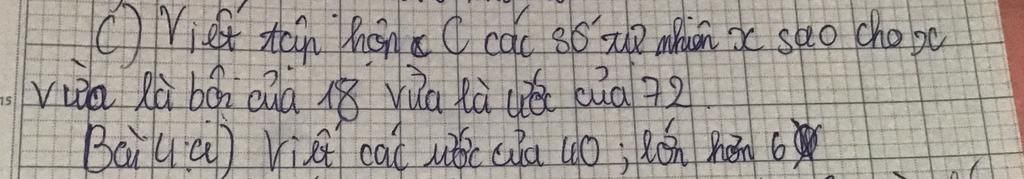 C) Viết tập hợp C các số tự nhiên x sao cho x
vừa là bội của 18 vừa là ước của 72
Bài 4: a) Viết các ước của 40; lớn hơn 6